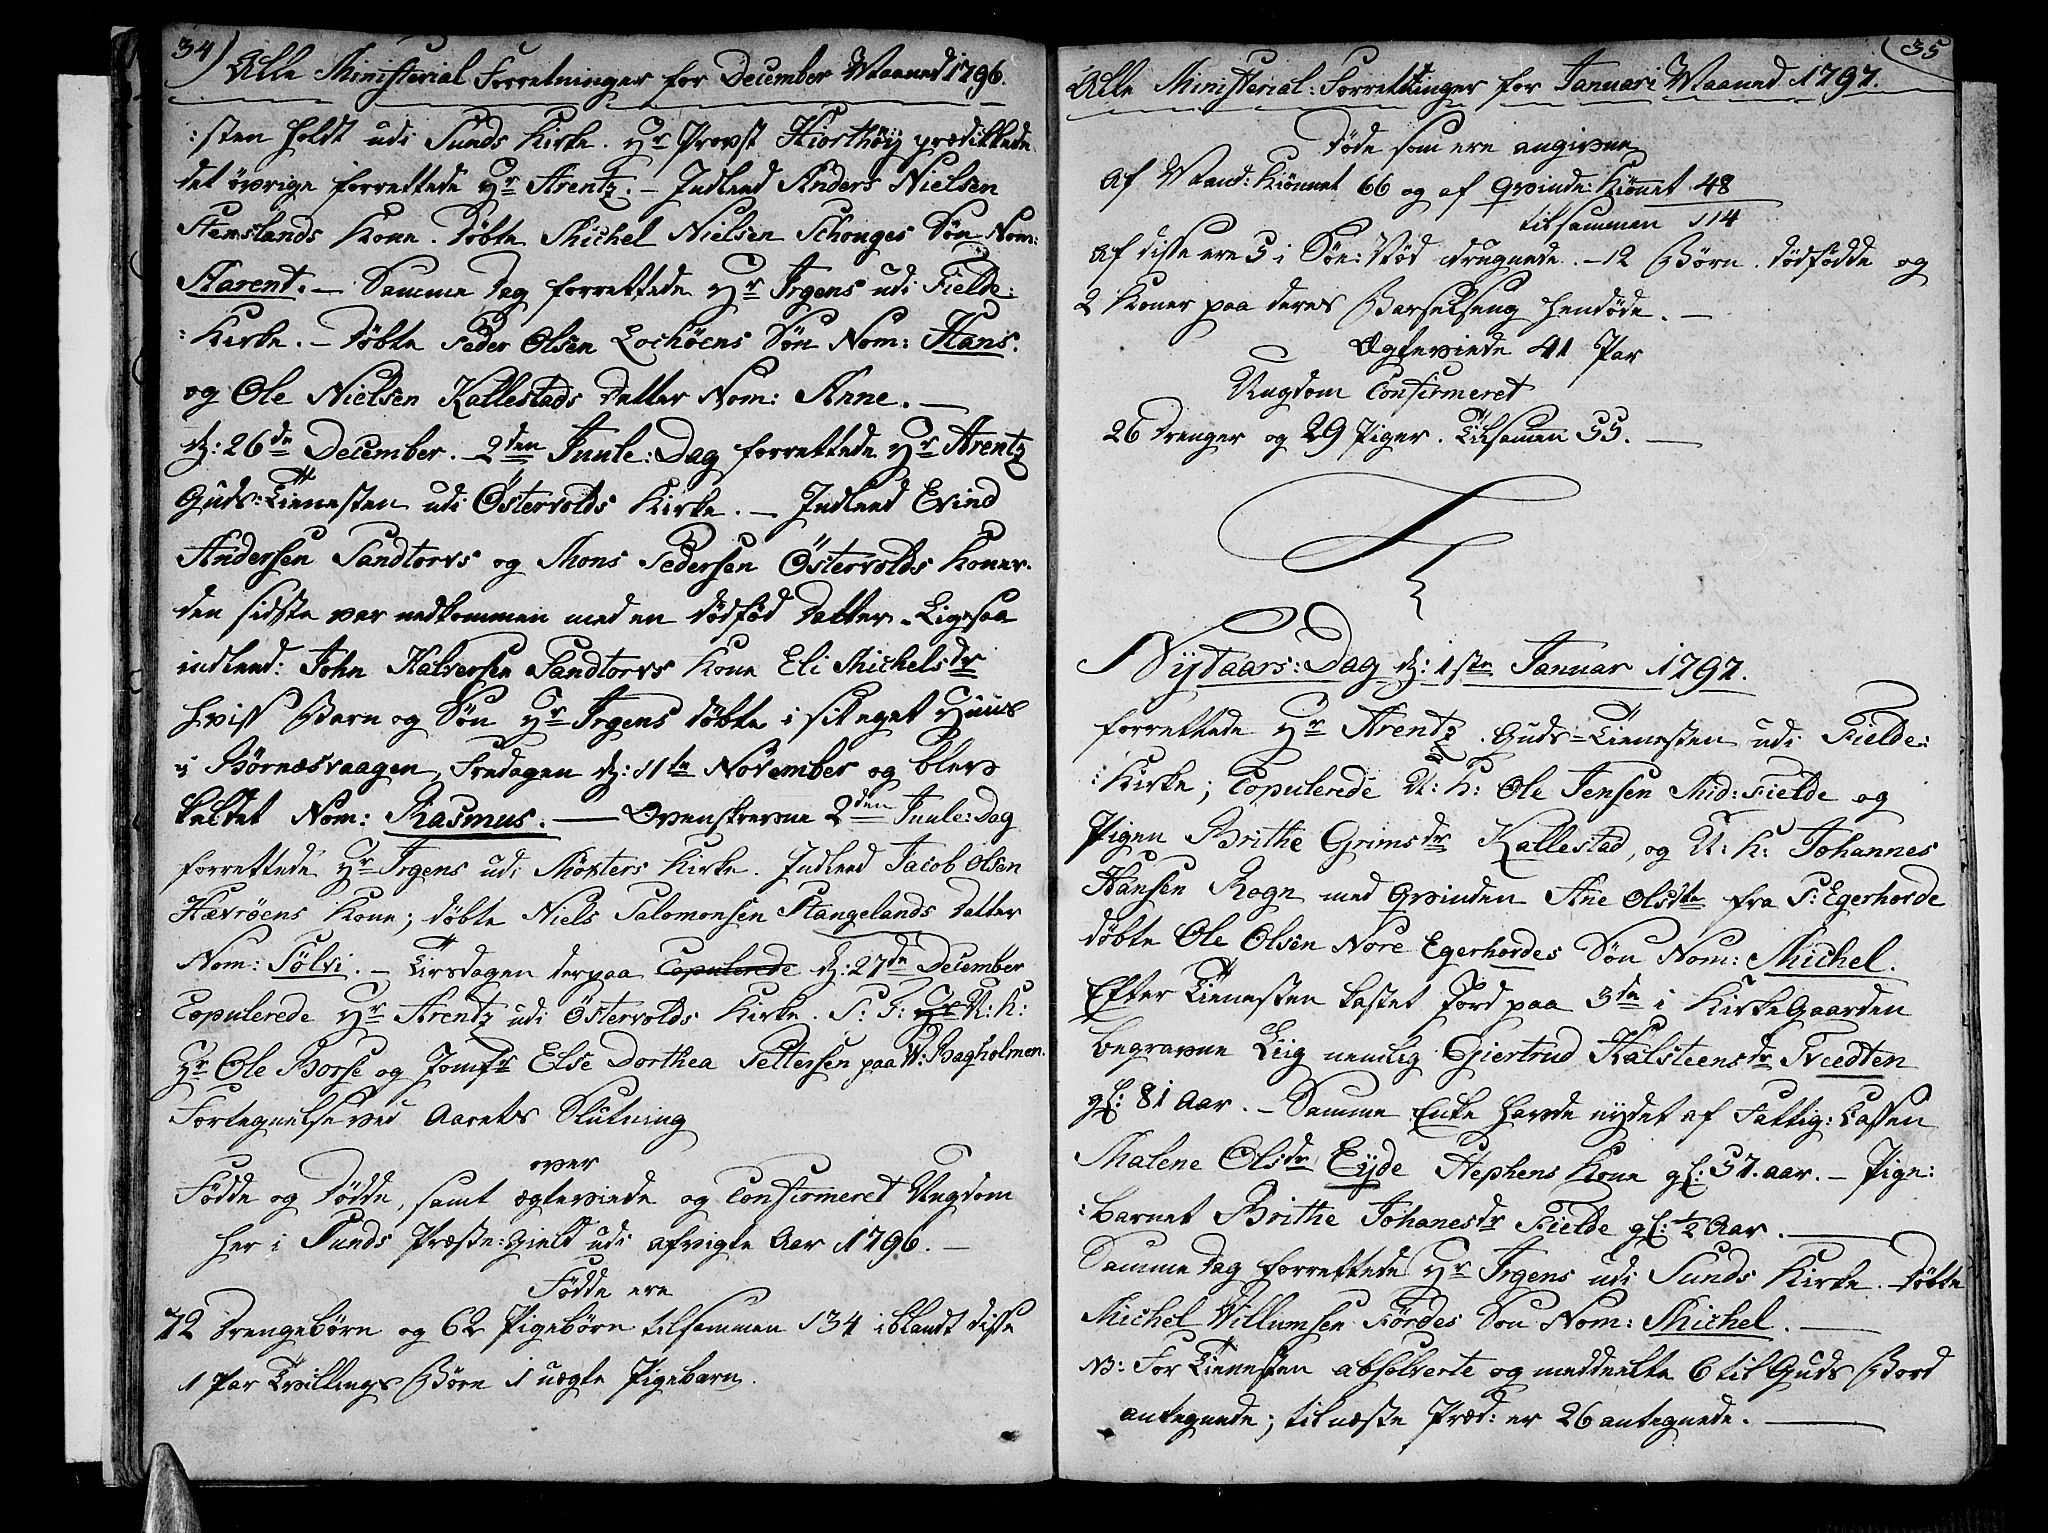 34) Alle Ministerial Forretninger for December Maaned 1796.
:sten holdt udi Sunds Kirke. Hr Provst Hiorthøy prædikkede
det øvrige forrettede Hr Arentz. – Indleed Anders Nielsen
Hemslands Kone. døbte Michel Nielsen Schouges Søn Nom:
Aarent. – Samme Dag forrettede Hr Irgens udi Fielde:
:Kirke. – døbte Peder Olsen Lochøens Søn Nom: Hans.
og Ole Nielsen Kallestads datter Nom: Anne. –
d: 26de December. 2den Juule:Dag forrettede Hr Arentz
Guds:Tienesten udi Østervolds Kirke. – Indleed Evind
Andersen Sandtorvs og Mons Pedersen Østervolds Koner.
den sidste var nedkommen med en dødfød datter. Ligesaa
indleed: John Halversen Sandtorvs Kone Eli Michelsdr
hvis Barn og Søn Hr Irgens døbte i sit eget Huus
i Børnæsvaagen, Fredagen d: 11te November og blev
kaldet Nom: Rasmus. — Ovenskrevne 2den Juule:Dag
forrettede Hr Irgens udi Møksters Kirke. Indleed Jacob Olsen
Hævrøens Kone; døbte Niels Salomonsen Stangelands datter
Nom: Sølvi. – Tirsdagen derpaa Copulerede d: 27de December
Copulerede Hr Arentz udi Østervolds Kirke. S: T: Hr U: K:
Hr Ole Borse og Jomfr Else Dorthea Pettersen paa W: Bagholmen.
Fortegnelse ved Aarets Slutning
over
Fødde og Dødde, samt ægteviede og Confirmeret Ungdom
her i Sunds Præste:Gield udi afvigte Aar 1796. –
Fødde ere
72 Drengebørn og 62 Pigebørn tilsammen 134 iblandt disse
1 Par Tvillings Børn 1 uægte Pigebarn.
(35
Alle Ministerial: Forrettinger for Januari Maaned 1797.
Døde som ere angivne
Af Mand:Kiønnet 66 og af Qvinde:Kiønet 48
tilsammen 114
Af disse ere 5 i Søe:Nød druknede. – 12 Børn dødfødde og
2 Koner paa deres Barselseng hendøde. –
Ægteviede 41 Par
Ungdom Confirmeret
26 Drenger og 29 Piger. Tilsamen 55. —
Nytaars:Dag d: 1ste Januar 1797.
forrettede Hr Arentz Guds=Tienesten udi Fielde:
:Kirke; Copulerede U: K: Ole Jensen Mid:Fielde og
Pigen Brithe Grimsdr Kallestad, og U: K: Johannes
Hansen Rogn med Qvinden Ane Olsdtr fra S: Egerhorde
døbte Ole Olsen Nore Egerhordes Søn Nom: Michel.
Efter Tienesten kastet Jord paa 3de i KirkeGaarden
begravne Liig nemlig Giertrud Halsteensdr Tvedten
gl: 81 Aar. – Samme Enke havde nydet af Fattig:Cassen
Malene Olsdr Eyde Stephens Kone gl: 57. aar. – Pige:
:barnet Brithe Johanesdr Fielde gl: 1/2 Aar. —
Samme Dag forrettede Hr Irgens udi Sunds Kirke. døbte
Michel Willumsen Førdes Søn Nom: Michel. —
NB: For Tienesten absolverte og meddeelte 6 til Guds Bord
antegnede; til næste Præd: er 26 antegnede. —